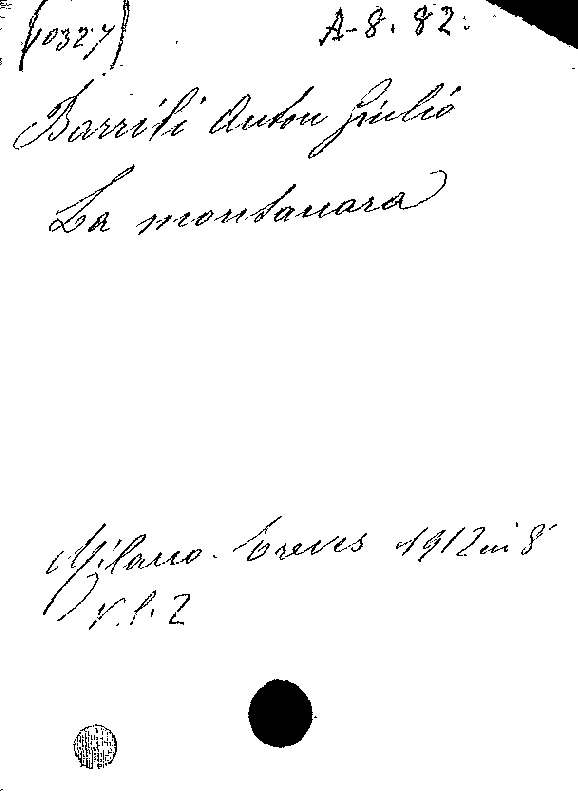 (10327)
A-8. 82.
Barrili Anton Giulio
La montanara
Milano. Treves 1912 in 8°
V. 1. 2